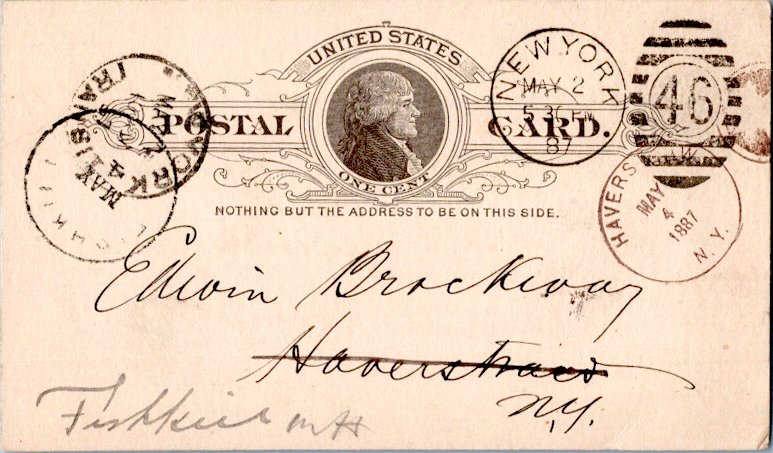 UNITED STATES
POSTAL CARD.
ONE CENT
NOTHING BUT THE ADDRESS TO BE ON THIS SIDE.
NEW YORK
MAY 2
87
46
HAVERS
MAY
4
1887
N.Y.
MAY
4
Edwin Brockway
Haverstraw
N.Y.
Fishkill